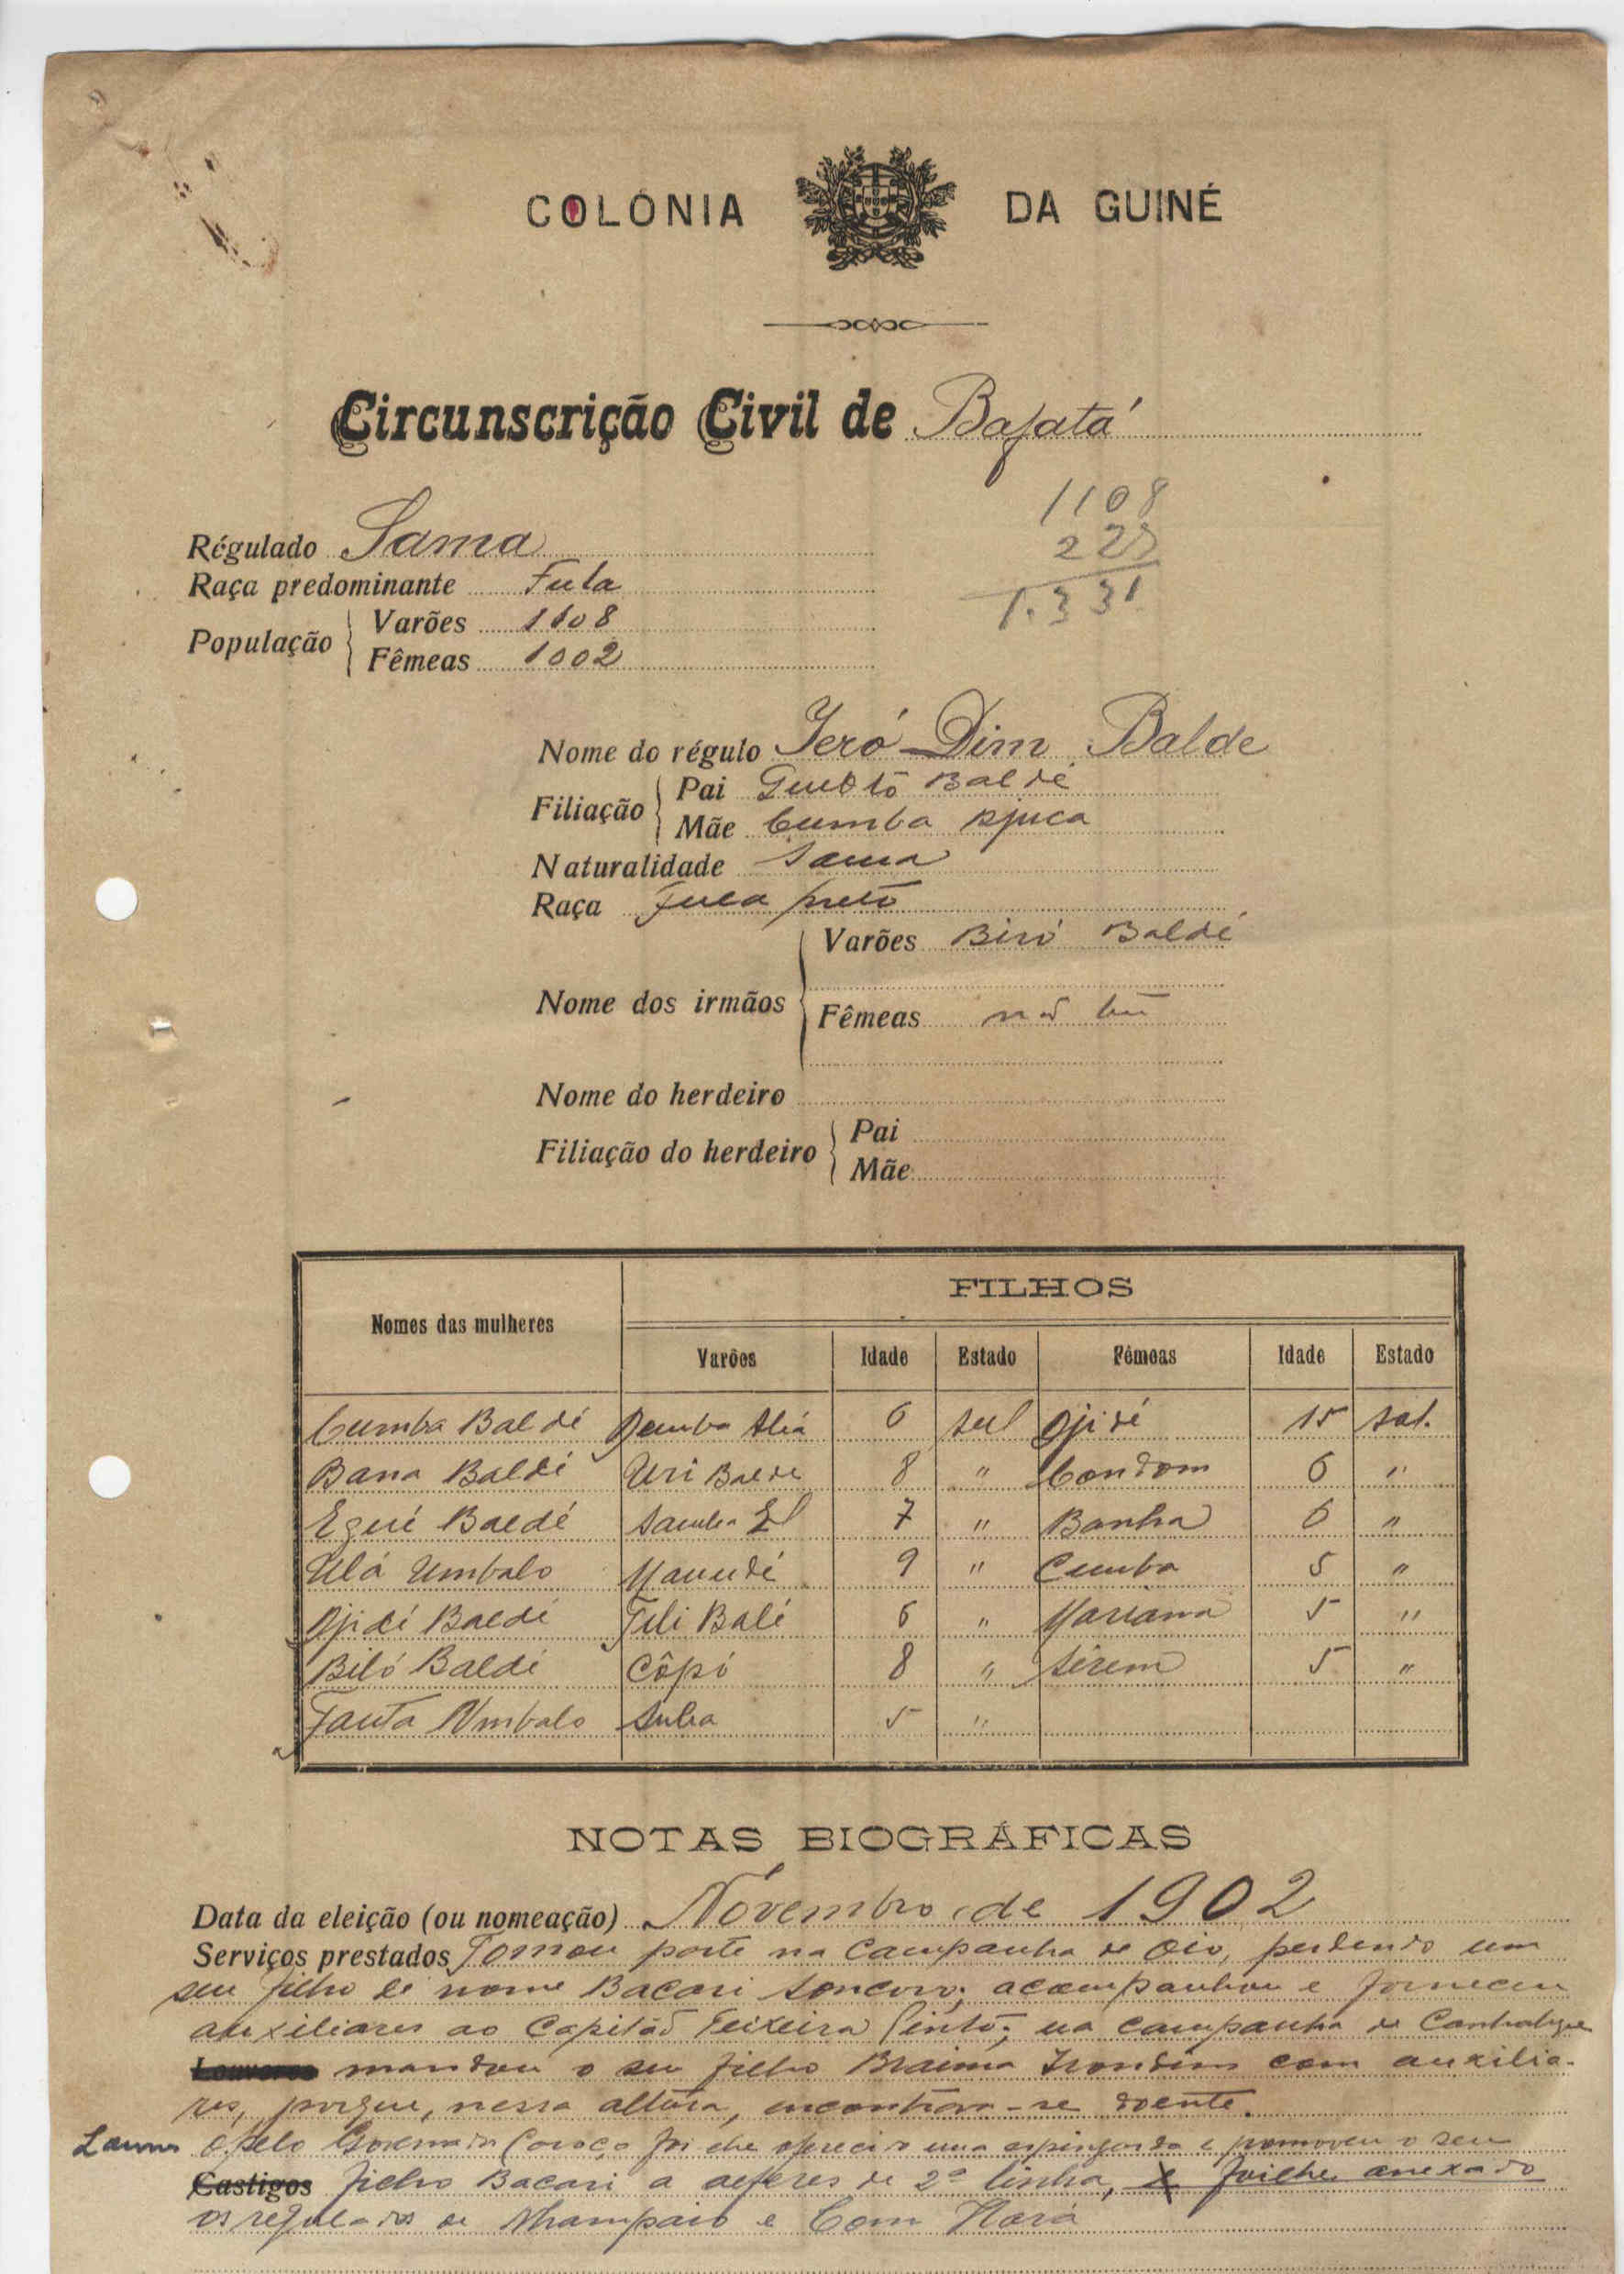 COLÓNIA DA GUINÉ
Circunscrição Civil de Bafatá
1108
223
1.331
Régulado Sama
Raça predominante Fula
População
Varões 1108
Fêmeas 1002
Nome do régulo Jeró Dim Balde
Filiação
Pai Baldé
Mãe Cumba Djuca
Naturalidade Sama
Raça Fula preto
Nome dos irmãos
Varões Biró Baldé
Fêmeas não tem
Nome do herdeiro
Filiação do herdeiro
Pai
Mãe
FILHOS
Nomes das mulheres Varões Idade Estado Fêmeas Idade Estado
Cumba Baldé Demba Aliá 6 sol Djidé 15 sol.
Bana Baldé Uri Balde 8 " Condom 6 "
Egué Baldé Samba 7 " Banha 6 "
Ulá Umbalo Mamudé 9 " Cumba 5 "
Djidé Baldé Fili Balé 6 " Mariama 5 "
Biló Baldé Côpó 8 " Sirem 5 "
Fanta Umbalo 5 "
NOTAS BIOGRÁFICAS
Data da eleição (ou nomeação) Nóvembro de 1902
Serviços prestados Tomou parte na campanha de Oio, perdendo um
seu filho de nome Bacari; acompanhou e forneceu
auxiliares ao Capitão Teixeira Pinto; na campanha de Canhabaque
mandou o seu filho Braima com auxilia-
res, porque, nessa altura, encontrava-se doente.
Pelo Governador foi-lhe oferecida uma espingarda e promoveu o seu
Castigos filho Bacari a alferes de 2ª linha, anexado
os regulados de Mhampaio e Com Hará